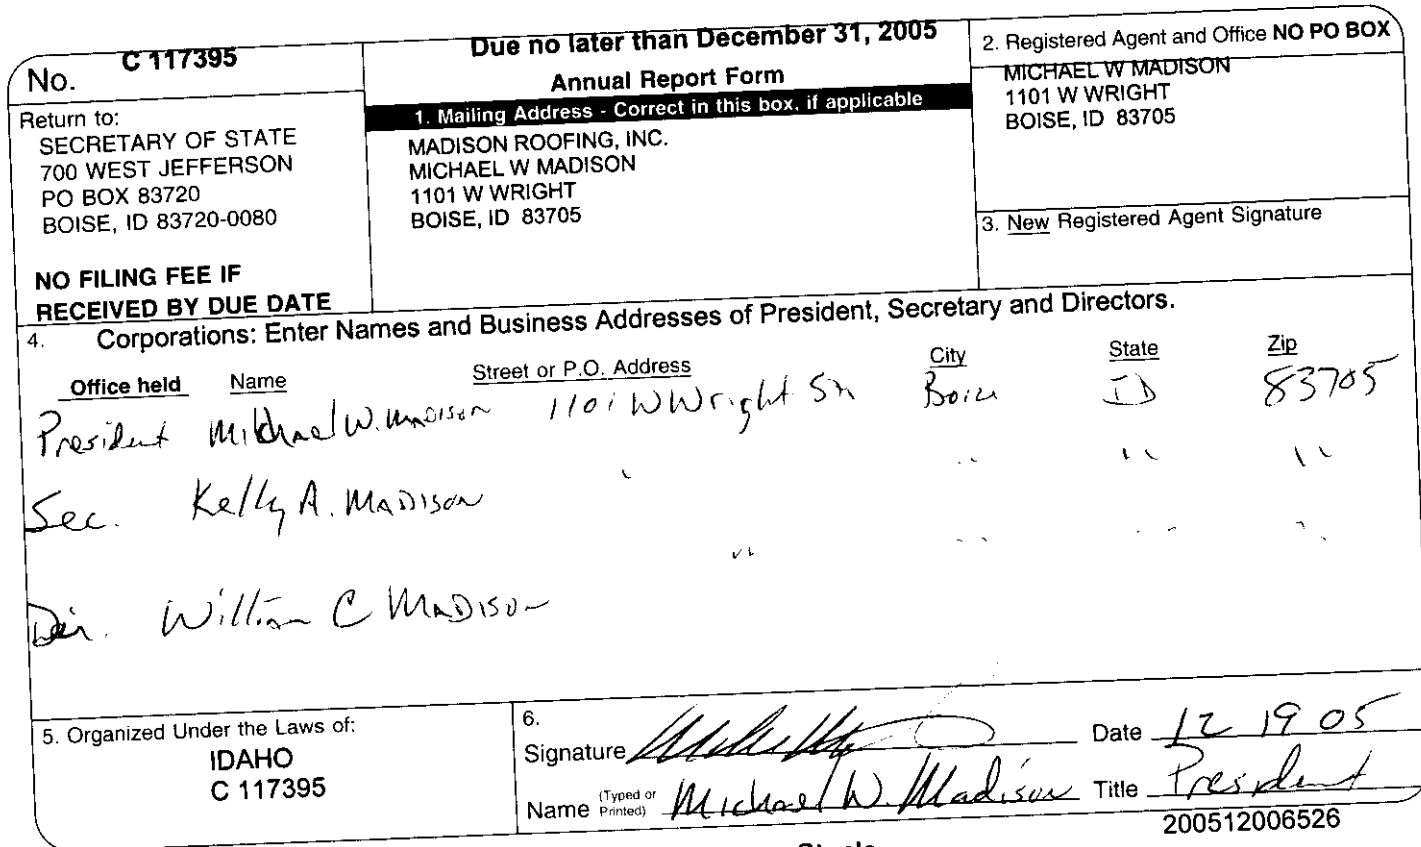 No. C 117395
Return to:
SECRETARY OF STATE
700 WEST JEFFERSON
PO BOX 83720
BOISE, ID 83720-0080
NO FILING FEE IF
RECEIVED BY DUE DATE
Due no later than December 31, 2005
Annual Report Form
1. Mailing Address - Correct in this box, if applicable
MADISON ROOFING, INC.
MICHAEL W MADISON
1101 W WRIGHT
BOISE, ID 83705
2. Registered Agent and Office NO PO BOX
MICHAEL W MADISON
1101 W WRIGHT
BOISE, ID 83705
3. New Registered Agent Signature
4. Corporations: Enter Names and Business Addresses of President, Secretary and Directors.
Office held Name Street or P.O. Address City State Zip
President Michael W. Madison 1101 W Wright Boise ID 83705
Sec. Kelly A. Madison " " " "
Dir. William C Madison " " " "
5. Organized Under the Laws of:
IDAHO
C 117395
6.
Signature Date 12 19 05
Name (Typed or Printed) Michael W. Madison Title President
200512006526